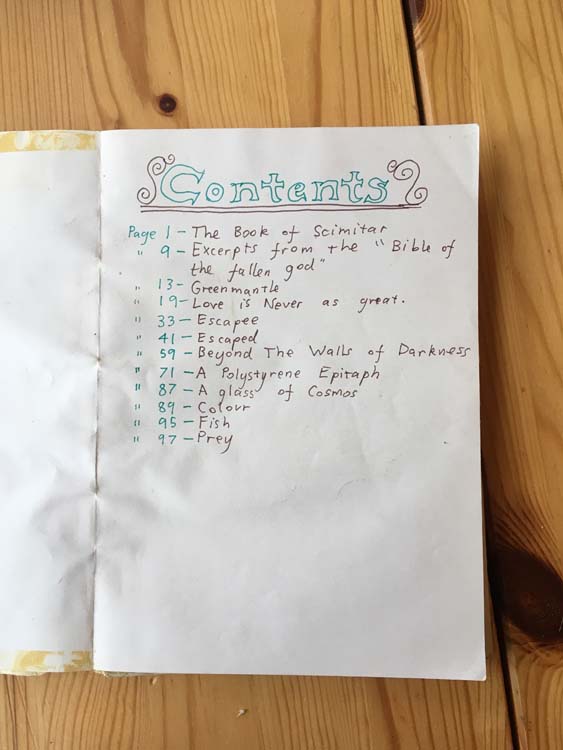 Contents
Page 1 - The Book of Scimitar
" 9 - Excerpts from the "Bible of
the fallen god"
" 13 - Greenmantle
" 19 - Love is Never as great.
" 33 - Escapee
" 41 - Escaped
" 59 - Beyond The Walls of Darkness
" 71 - A Polystyrene Epitaph
" 87 - A glass of Cosmos
" 89 - Colour
" 95 - Fish
" 97 - Prey